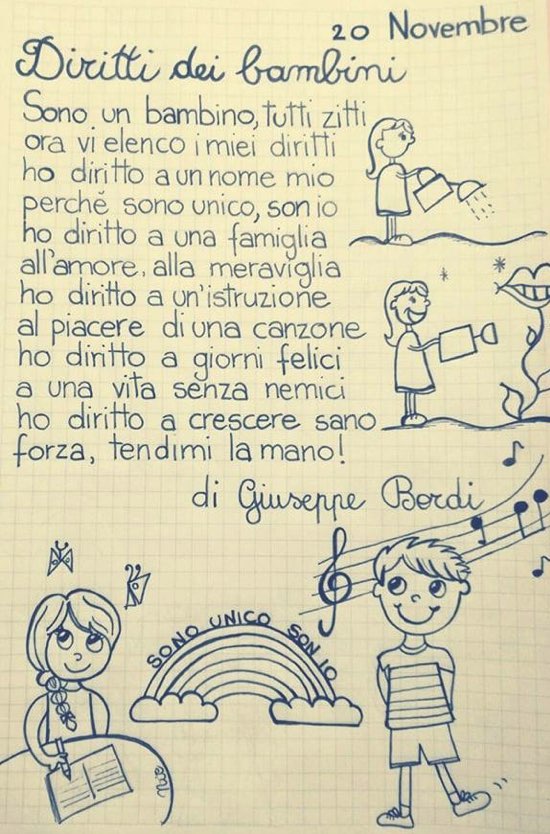 20 Novembre
Diritti dei bambini
Sono un bambino, tutti zitti
ora vi elenco i miei diritti
ho diritto a un nome mio
perchĕ sono unico, son io
ho diritto a una famiglia
all'amore, alla meraviglia
ho diritto a un'istruzione
al piacere di una canzone
ho diritto a giorni felici
a una vita senza nemici
ho diritto a crescere sano
forza, tendimi la mano!
di Giuseppe Bordi
SONO UNICO SON IO